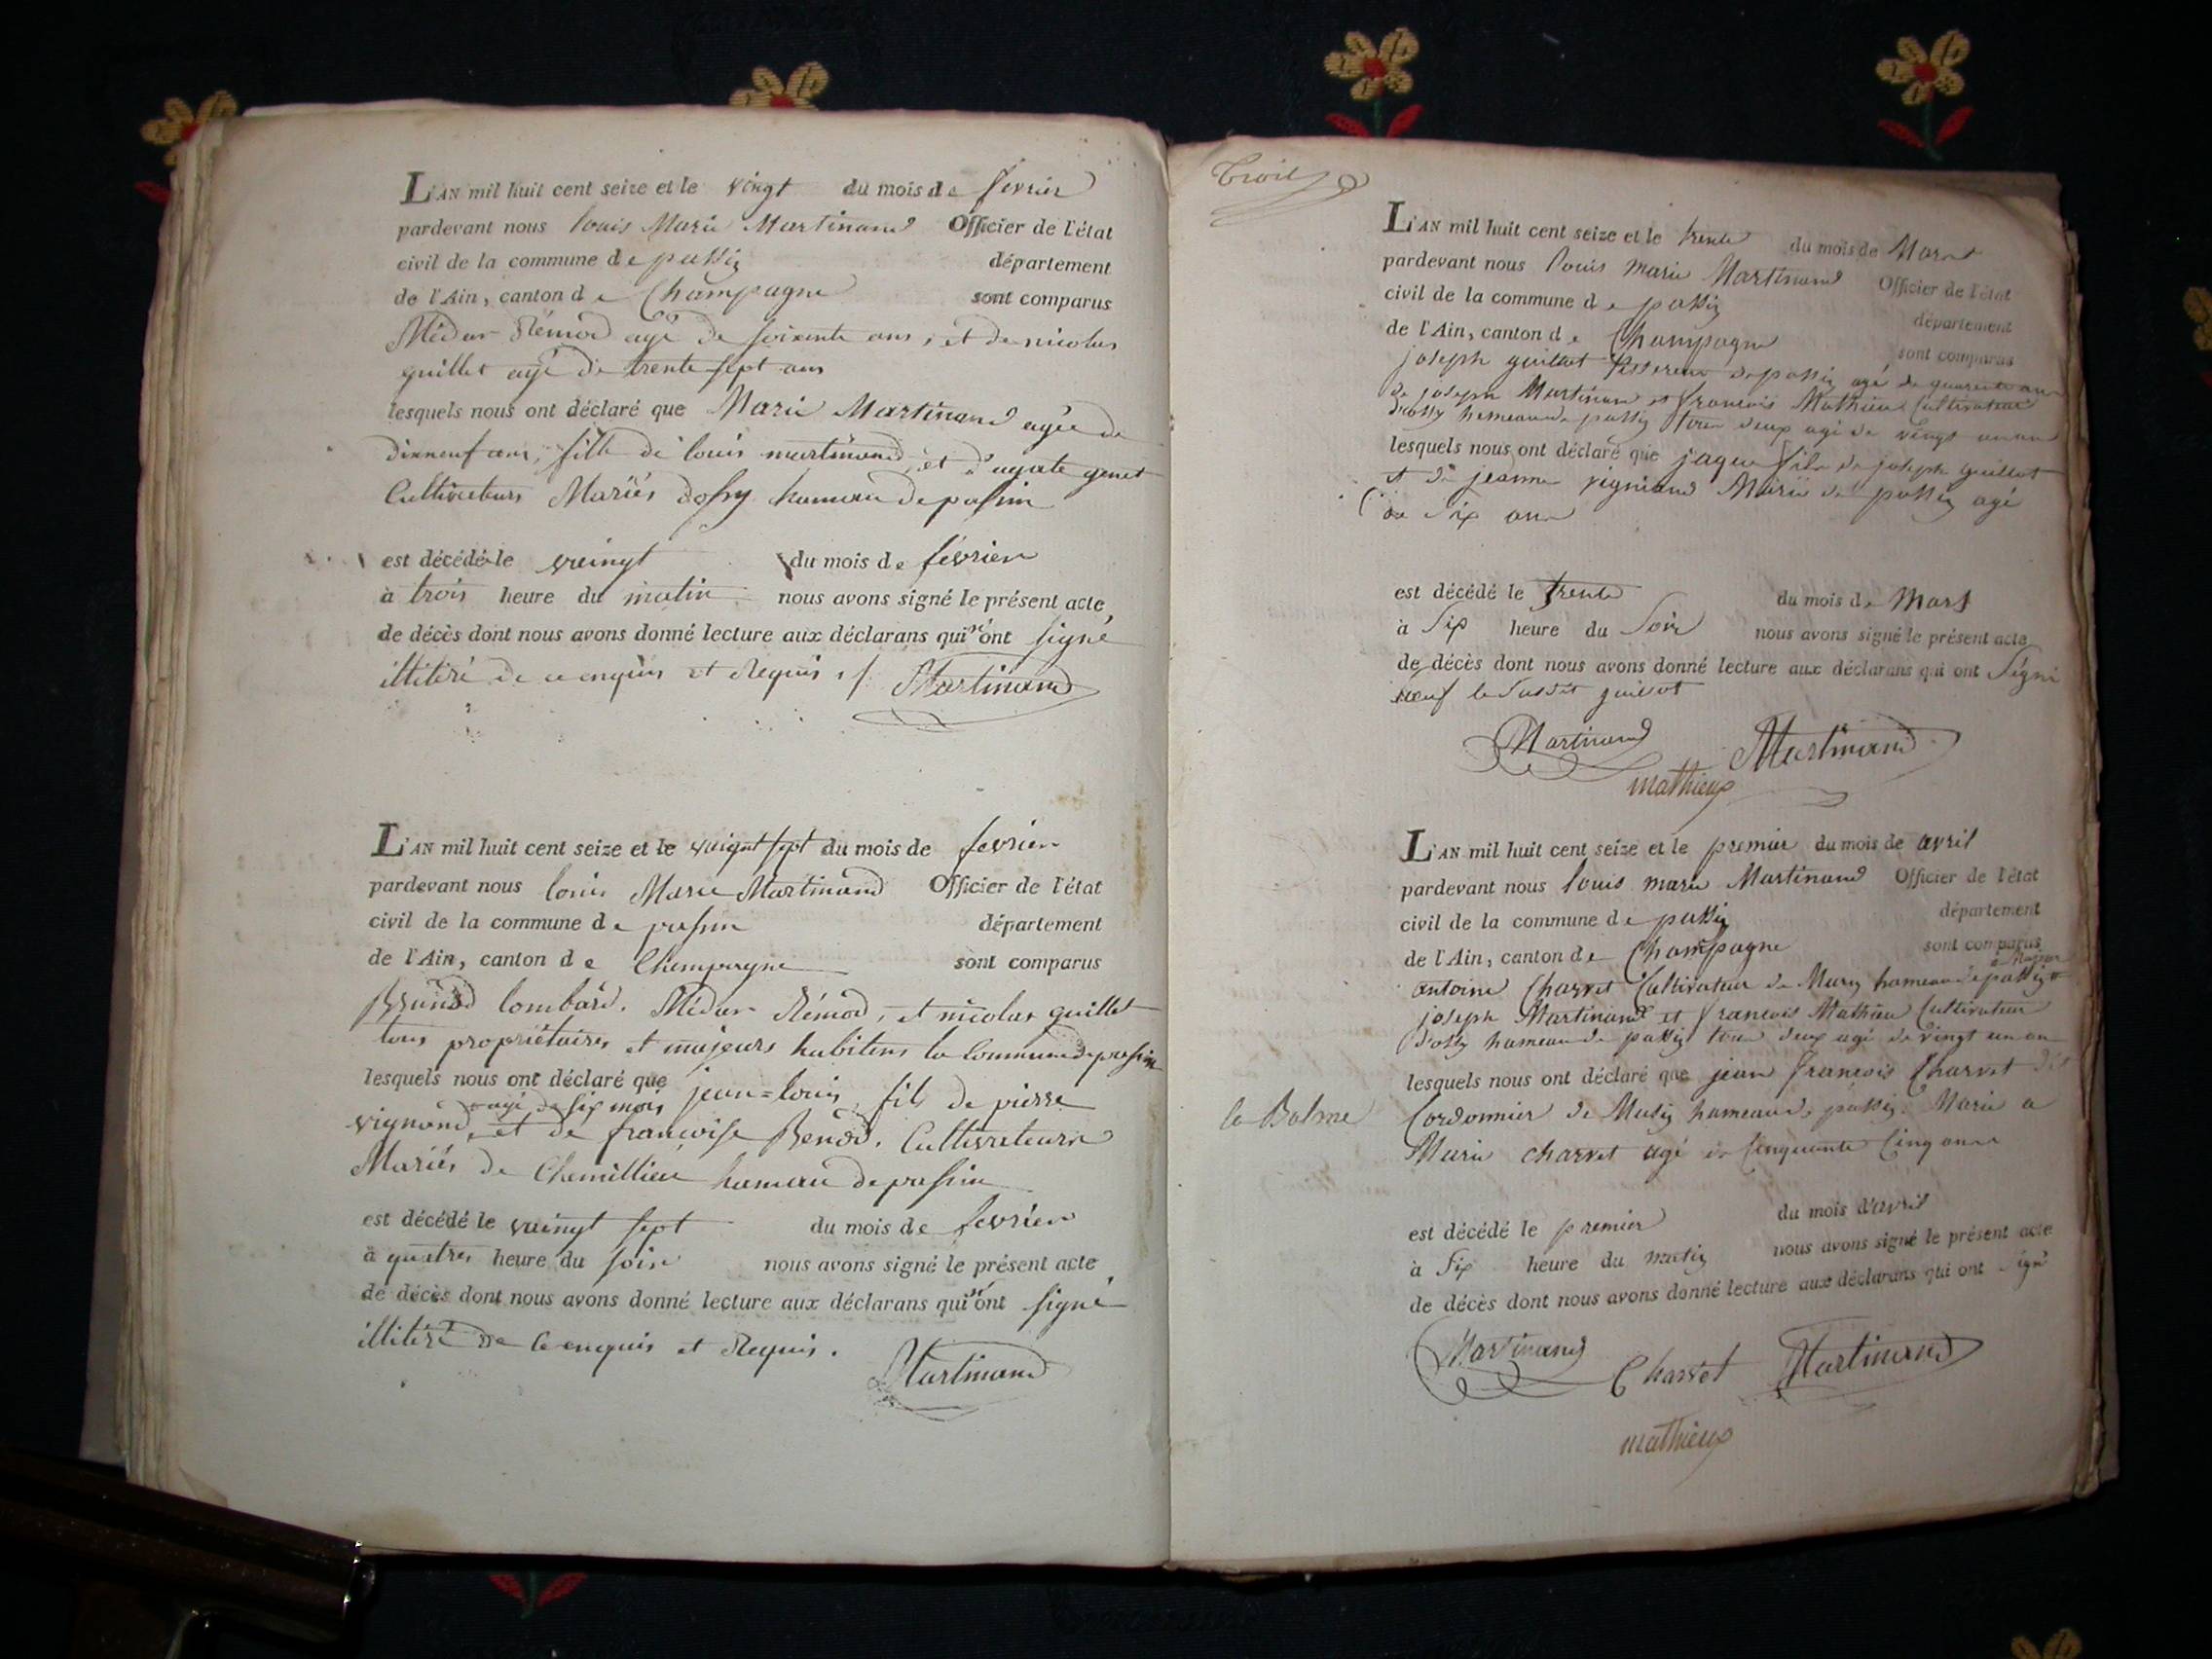 L'AN mil huit cent seize et le vingt du mois de fevrier
pardevant nous louis Marie Martinand Officier de l'état
civil de la commune de passin département
de l'Ain, canton de Champagne sont comparus
Médar Rémod agé de soixante ans, et de nicolas
guillet agé de trente sept ans
lesquels nous ont déclaré que Marie Martinand agée de
dixneuf ans, fille de louis martinand et d'agate genet
Cultivateurs Mariés d'ossy hameau de passin
est décédé le veingt du mois de fevrier
à trois heure du matin nous avons signé le présent acte
de décès dont nous avons donné lecture aux déclarans qui n'ont signé
illitéré de ce enquis et Requis ./. Martinand
L'AN mil huit cent seize et le veignt sept du mois de fevrier
pardevant nous louis Marie Martinand Officier de l'état
civil de la commune de passin département
de l'Ain, canton de Champagne sont comparus
Benoid lombard. Médar Rémod, et nicolas guillet
tous propriétaires et majeurs habitens la Commune de passin
lesquels nous ont déclaré que jean-louis, fils de pierre
agé de six mois
vignond, et de francoise Benod, Cultivateurs
Mariés de Chemillieu hameau de passin
est décédé le veingt sept du mois de fevrier
à quatres heure du soir nous avons signé le présent acte
de décès dont nous avons donné lecture aux déclarans qui n'ont signé
illitéré de Ce enquis et Requis.
Martinand
trois
L'AN mil huit cent seize et le trente du mois de Mars
pardevant nous louis marie Martinand Officier de l'état
civil de la commune de passin département
de l'Ain, canton de Champagne sont comparus
joseph guillot tisserent de passin agé de quarente ans
de joseph Martinand et francois Mathieu Cultivateur
d'ossy hameau de passin tous deux agé de vingt un an
lesquels nous ont déclaré que jaque fils de joseph guillot
et de jeanne vigniand Marié de passin agé
de Six ans
est décédé le trente du mois de Mars
à Six heure du Soir nous avons signé le présent acte
de décès dont nous avons donné lecture aux déclarans qui ont Signé
le Susdit guillot
Martinand Martinand
mathieux
L'AN mil huit cent seize et le premier du mois de avril
pardevant nous louis marie Martinand Officier de l'état
civil de la commune de passin département
de l'Ain, canton de Champagne sont comparus
antoine Charvet Cultivateur de hameau de passin
joseph Martinand et francois Mathieu Cultivateur
d'ossy hameau de passin tous deux agé de vingt un an
lesquels nous ont déclaré que jean francois Charvet
la Balme
Cordonnier de hameau de passin Marié a
Marie charvet agé de Cinquante Cinq ans
est décédé le premier du mois d'avril
à Six heure du matin nous avons signé le présent acte
de décès dont nous avons donné lecture aux déclarans qui ont signé
Martinand Charvet Martinand
mathieux